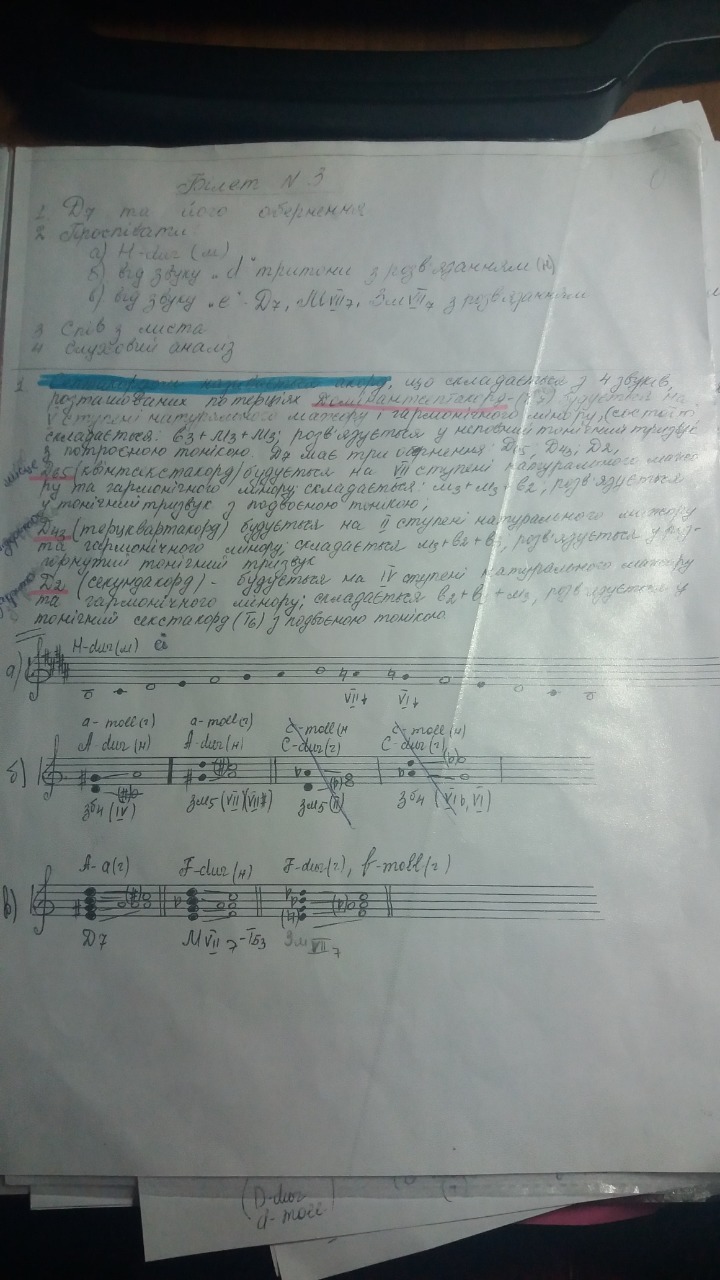 Білет N 3
1. D7 та його обернення
2. Проспівати:
а) H-dur (м)
б) від звуку „d" тритони з розв'язанням (н)
в) від звуку „е" - D7, МVII7, ЗмVII7 з розв'язанням
3 Спів з листа
4 Слуховий аналіз
1 Септакордом називається акорд, що складається з 4 звуків,
розташованих по терціях Домінантсептакорд (D7) будується на
V ступені натурального мажору і гармонічного мінору, (состоіт
складається: в3 + м3 + м3; розв'язується у неповний тонічний тризвук
з потроєною тонікою. D7 має три обернення: D65, D43, D2,
D65 (квінтсекстакорд) будується на VII ступені натурального мажо
ру та гармонічного мінору; складається: м3+м3+в2, розв'язується
у тонічний тризвук з подвоєною тонікою;
D43 (терцквартакорд) будується на II ступені натурального мажору
та гармонічного мінору; складається м3+в2+в3, розв'язується у роз-
горнутий тонічний тризвук
D2 (секундакорд) - будується на IV ступені натурального мажору
та гармонічного мінору; складається в2+в3+м3, розв'язується у
тонічний секстакорд (Т6) з подвоєною тонікою
а) H-dur (м)
VII↓ VI↓
a-moll (г) a-moll (г) c-moll (н c-moll (н)
б) A-dur (н) A-dur (н) C-dur (г) C-dur (г)
зб4 (IV) зм5 (VII)(VII#) зм5 (II) зб4 (VIb, VI)
A-a (г) F-dur (н) F-dur (г), f-moll (г)
в)
D7 МVII7-Т53 ЗмVII7
D-dur
d-moll